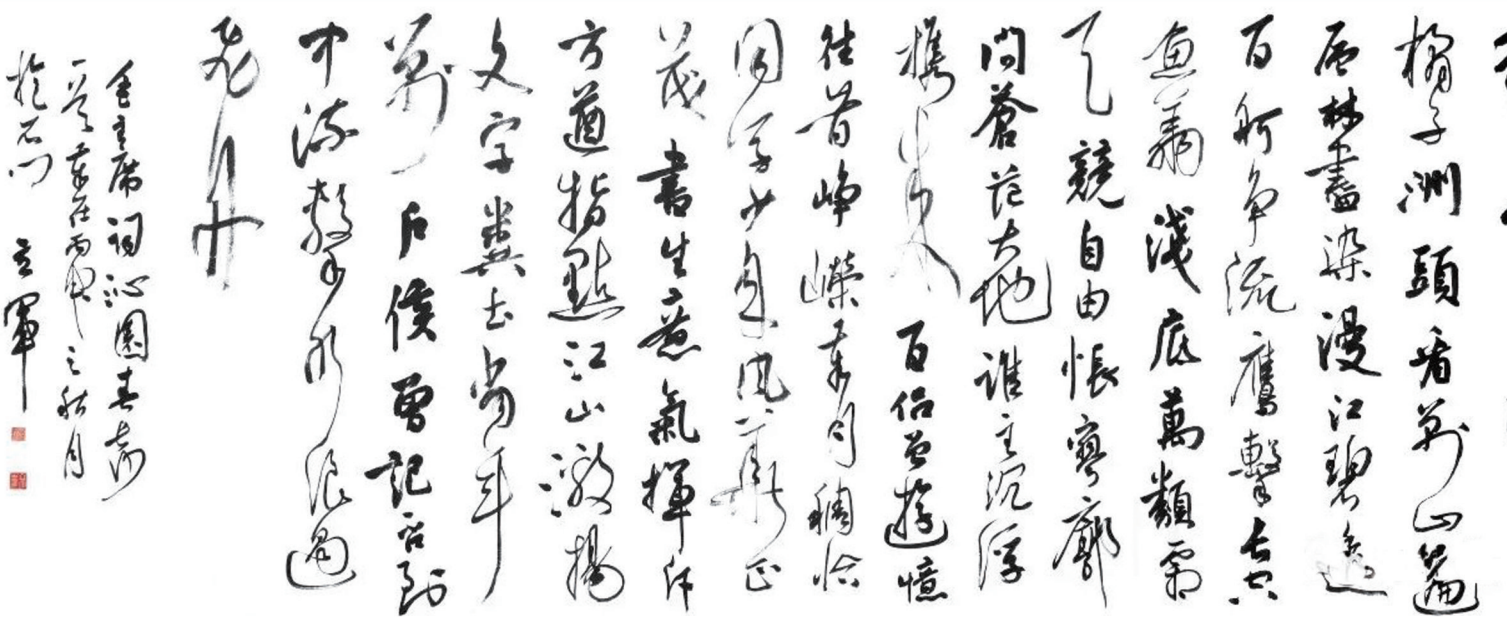 橘子洲頭看萬山遍
層林盡染漫江碧透
百舸争流鷹擊長空
魚翔淺底萬類霜
天競自由悵寥廓
問蒼茫大地誰主沉浮
攜來百侣曾遊憶
往昔崢嶸歲月稠恰
同學少年風華正
茂書生意氣揮斥
方遒指點江山激揚
文字糞土當年
萬户侯曾記否到
中流擊水浪遏
飛舟
毛主席詞沁園春長沙
一首歲在丙申之秋月
於石門 軍